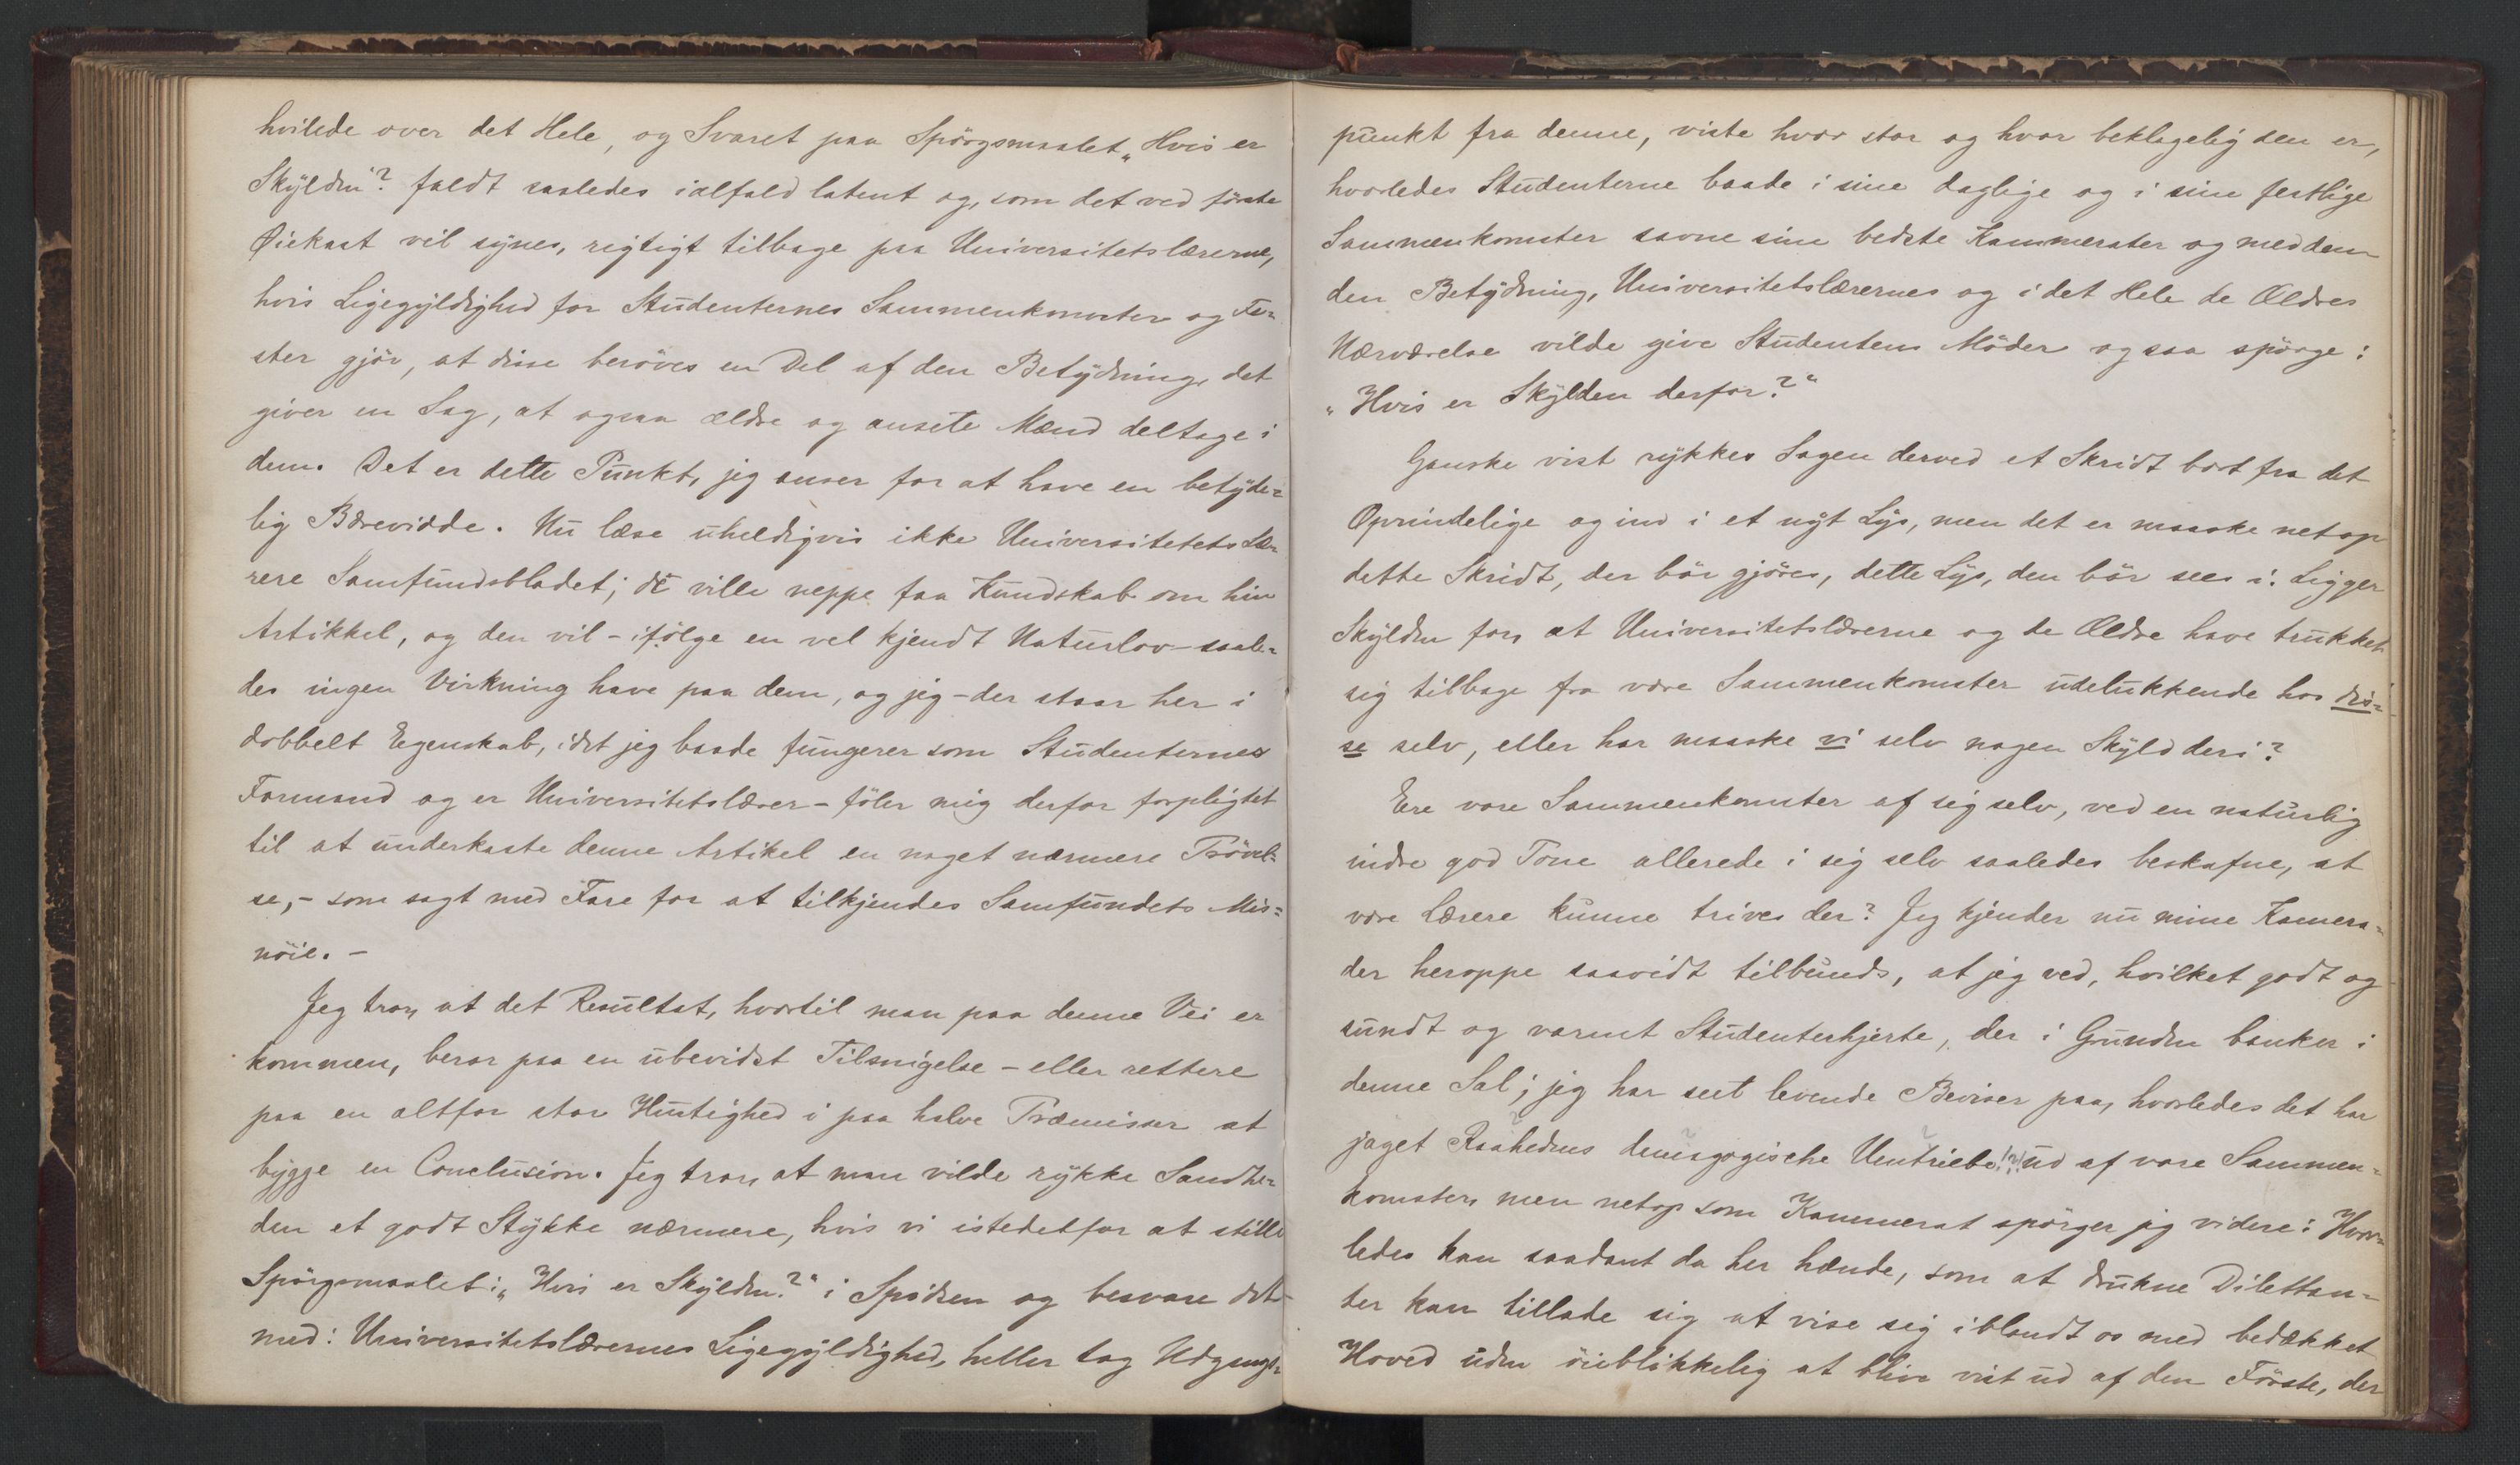 hvilede over det Hele, og Svaret paa Spörgsmaalet „Hvis er
Skylden"? faldt saaledes ialfald latent og, som det ved förste
Øiekast vil synes, rigtigt tilbage paa Universitetslærerne,
hvis Ligegyldighed for Studenternes Sammenkomster og Fe=
ster gjör, at disse beröves en Del af den Betydning, det
giver en Sag, at ogsaa ældre og ansete Mænd deltage i
dem. Det er dette Punkt, jeg anser for at have en betyde=
lig Bærevidde. Nu læse uheldigvis ikke Universitetets Læ=
rere Samfundsbladet; de ville neppe faa Kundskab om hin
Artikkel, og den vil - ifölge en vel kjendt Naturlov - saale=
des ingen Virkning have paa dem, og jeg - der staar her i
dobbelt Egenskab, idet jeg baade fungerer som Studenternes
Formand og er Universitetslærer - föler mig derfor forpligtet
til at underkaste denne Artikel en noget nærmere Prövel=
se, - som sagt med Fare for at tilkjendes Samfundets Mis=
nöie. -
Jeg tror, at det Resultat, hvortil man paa denne Vei er
kommen, beror paa en ubevidst Tilsnigelse - eller rettere
paa en altfor stor Hurtighed i paa halve Præmisser at
bygge en Conclusion. Jeg tror, at man vilde rykke Sandhe=
den et godt Stykke nærmere, hvis vi istedetfor at stille
Spörgsmaalet: „Hvis er Skylden?" i Spidsen og besvare det
med: Universitetslærernes Ligegyldighed, heller tog Udgangs=
punkt fra denne, viste hvor stor og hvor beklagelig den er,
hvorledes Studenterne baade i sine daglige og i sine festlige
Sammenkomster savne sine bedste Kammerater og med dem
den Betydning, Universitetslærernes og i det Hele de Ældres
Nærværelse vilde give Studentens Möder og saa spörge:
„Hvis er Skylden derfor?"
Ganske vist rykkes Sagen derved et Skridt bort fra det
Oprindelige og ind i et nyt Lys, men det er maaske netop
dette Skridt, der bör gjöres, dette Lys, den bör sees i. Ligger
Skylden for, at Universitetslærerne og de Ældre have trukket
sig tilbage fra vore Sammenkomster udelukkende hos dis=
se selv, eller har maaske vi selv nogen Skyld deri?
Ere vore Sammenkomster af sig selv, ved en naturlig
indre god Tone allerede i sig selv saaledes beskafne, at
vore Lærere kunne trives der? Jeg kjender nu mine Kamera=
der heroppe saavidt tilbunds, at jeg ved, hvilket godt og
sundt og varmt Studenterhjerte, der i Grunden banker i
denne Sal; jeg har seet levende Beviser paa, hvorledes det har
jaget Raahedens demagogische Umtriebe!?! ud af vore Sammen=
komster, men netop som Kammerat spörger jeg videre: Hvor=
ledes kan saadant da her hænde, som at drukne Dilettan=
ter kan tillade sig at vise sig iblandt os med bedækket
Hoved uden öieblikkelig at blive vist ud af den Förste, der